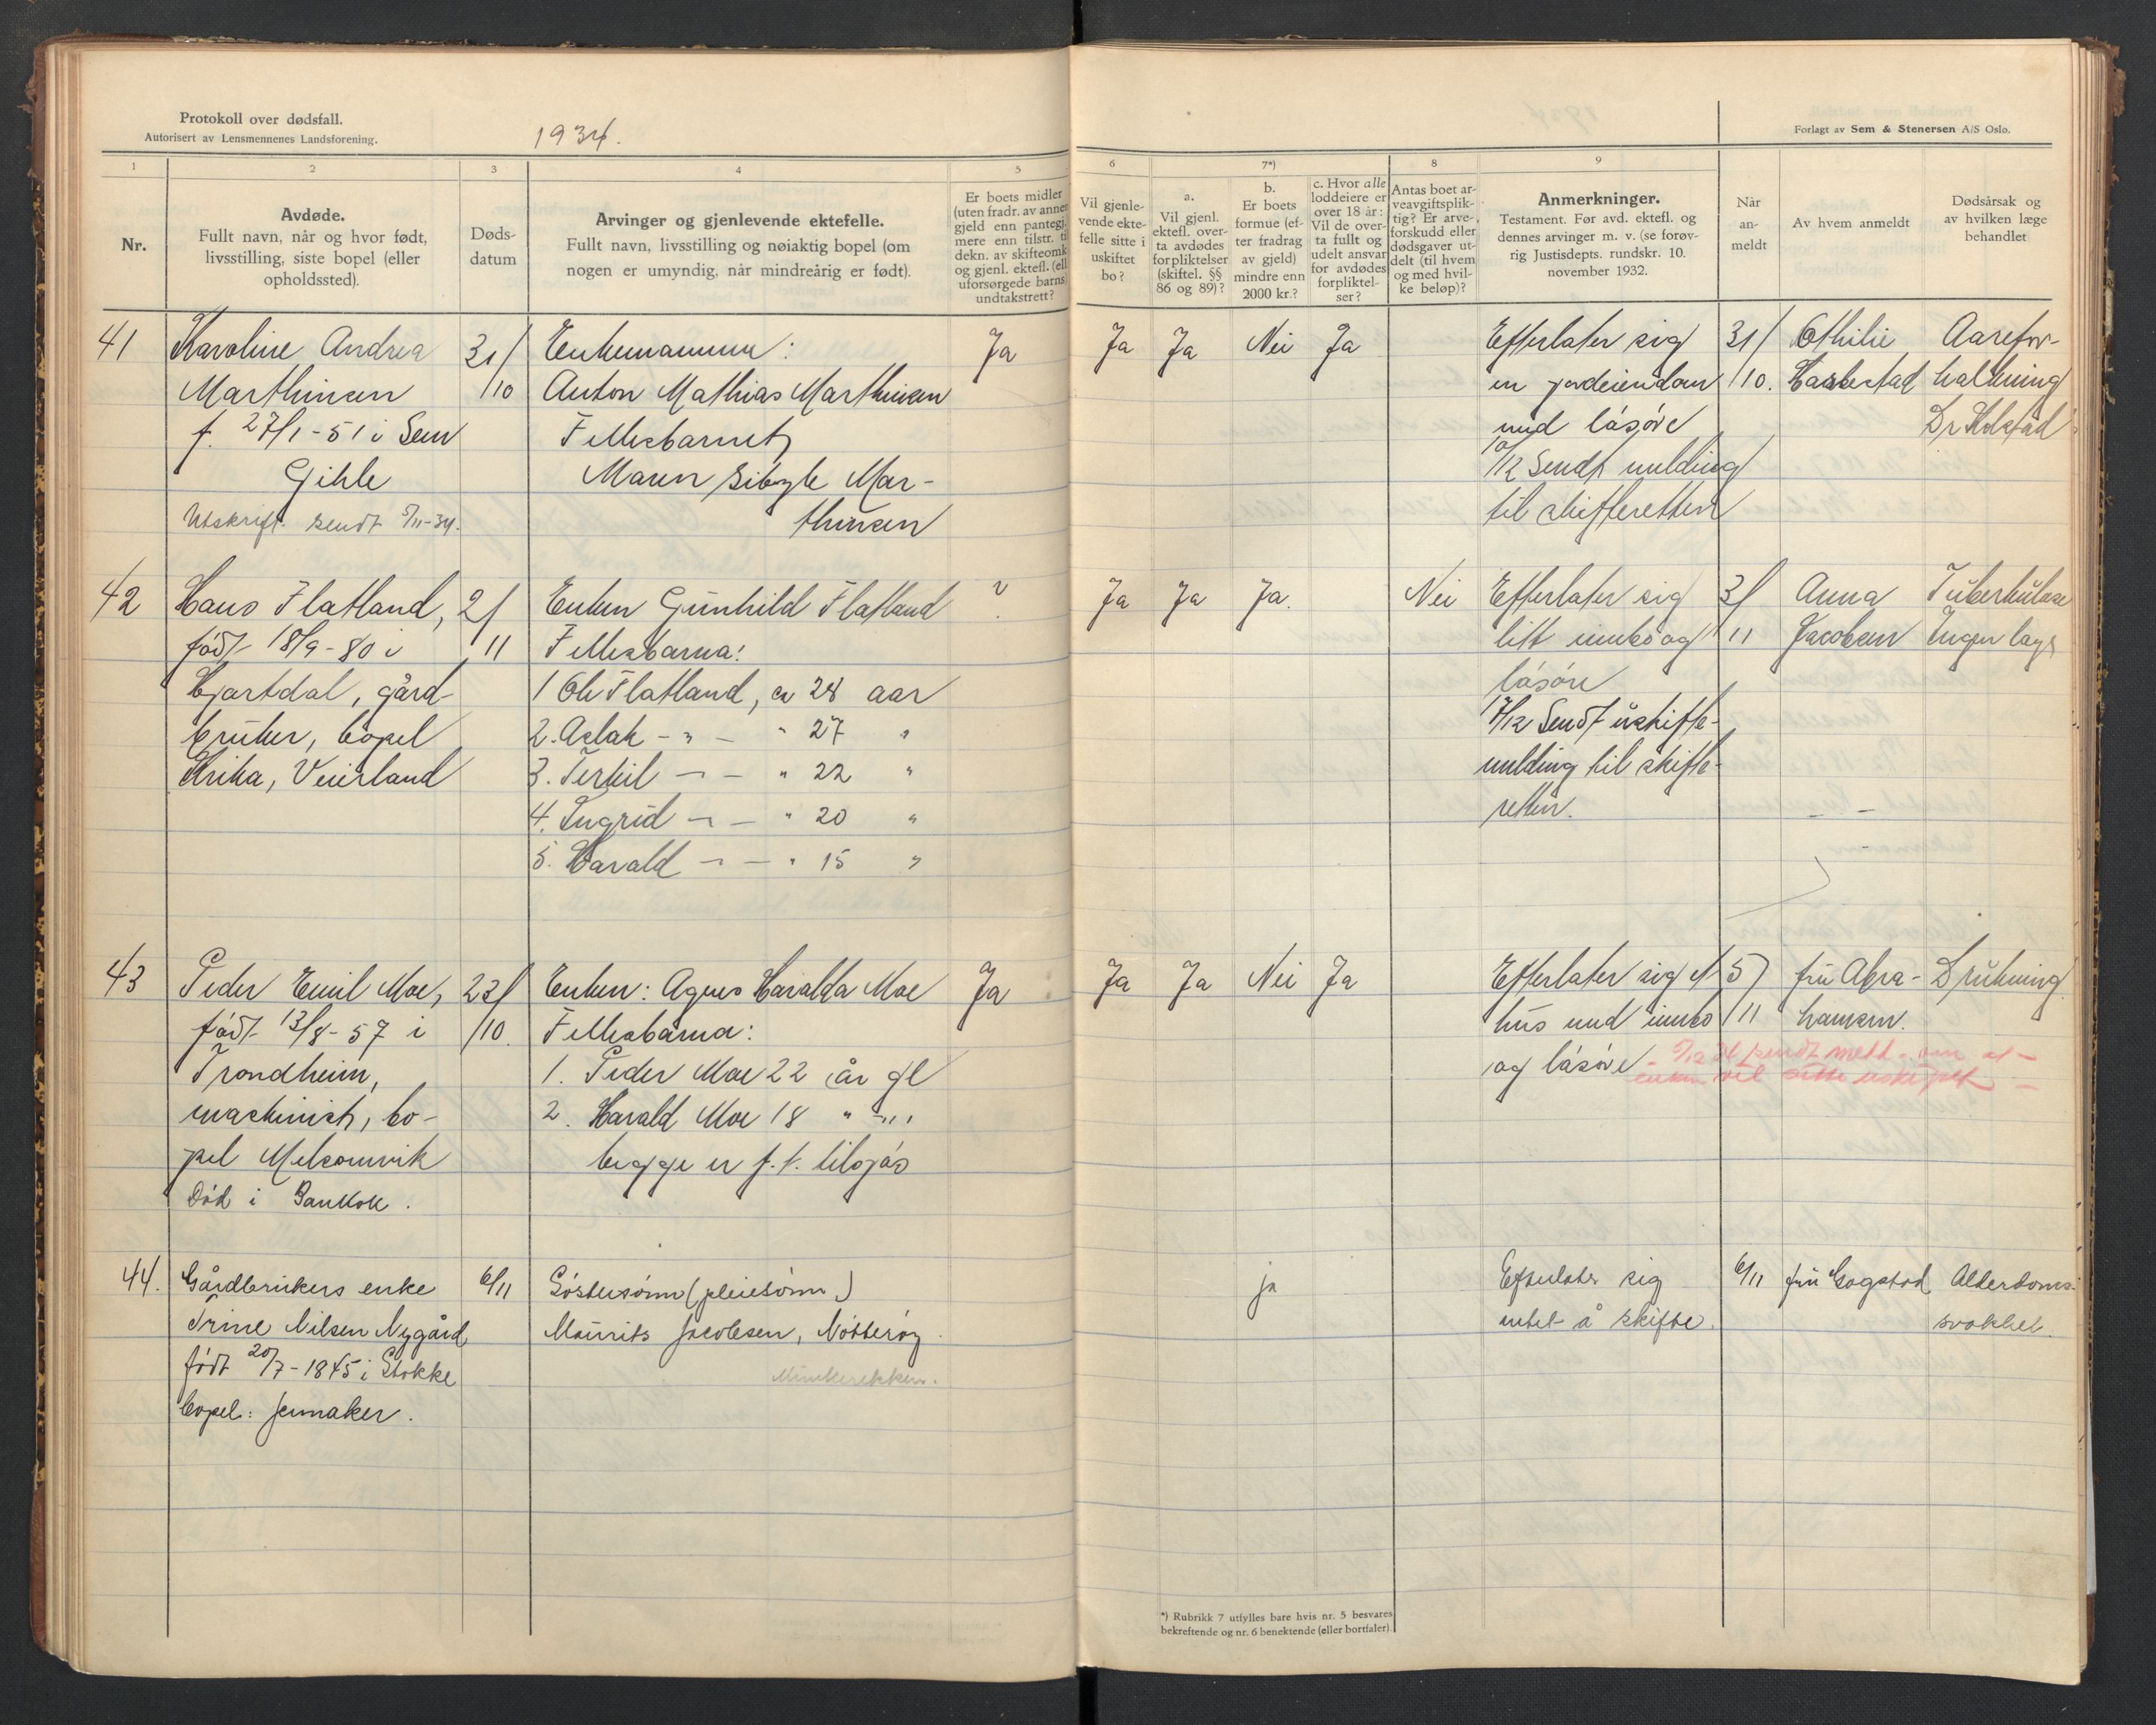 Protokoll over dødsfall.
Autorisert av Lensmennenes Landsforening.
1934.
Forlagt av Sem & Stenersen A/S Oslo.
1
2
3
4
5
6
7*)
8
9
Nr.
Avdøde.
Fullt navn, når og hvor født,
livsstilling, siste bopel (eller
opholdssted).
Døds-
datum
Arvinger og gjenlevende ektefelle.
Fullt navn, livsstilling og nøiaktig bopel (om
nogen er umyndig, når mindreårig er født).
Er boets midler
(uten fradr. av annen
gjeld enn pantegj.
mere enn tilstr. til
dekn. av skifteomk
og gjenl. ektefl. (ell
uforsørgede barns)
undtakstrett?
Vil gjenle-
vende ekte-
felle sitte i
uskiftet
bo?
a.
Vil gjenl.
ektefl. over-
ta avdødes
forpliktelser
(skiftel. §§
86 og 89)?
b.
Er boets
formue (ef-
ter fradrag
av gjeld)
mindre enn
2000 kr.?
c. Hvor alle
loddeiere er
over 18 år:
Vil de over-
ta fullt og
udelt ansvar
for avdødes
forpliktel-
ser?
Antas boet ar-
veavgiftsplik-
tig? Er arve-
forskudd eller
dødsgaver ut-
delt (til hvem
og med hvil-
ke beløp)?
Anmerkninger.
Testament. Før avd. ektefl. og
dennes arvinger m. v. (se forøv-
rig Justisdepts. rundskr. 10.
november 1932.
Når
an-
meldt
Av hvem anmeldt
Dødsårsak og
av hvilken læge
behandlet
41
Karoline Andrea
Marthinsen
f. 27/1-51 i Sem
Gihle
Utskrift sendt 5/11-34.
31/
/10
Enkemannen:
Anton Mathias Marthinsen
Fellesbarnet,
Maren Sibyle Mar-
thinsen
Ja
Ja
Ja
Nei
Ja
Efterlater sig
en jordeiendom
med løsøre
/12 Sendt melding
til skifteretten
31/
/10.
Othilie
Aarefor-
kalkning
Dr Holstad
42
Hans Flatland,
født 18/9-80 i
Hjartdal, gård-
bruker, bopel
Krika, Veierland
2/
11
Enken Gunhild Flatland
Fellesbarna:
1 Ole Flatland, ca 28 aar
2. Aslak - " - " 27 "
3. Terkil - " - " 22 "
4. Ingrid - " - " 20 "
5. Harald - " - " 15 "
?
Ja
Ja
Ja.
Nei
Efterlater sig
litt innbo og
løsøre
17/12 Sendt uskifte-
melding til skifte-
retten.
3/
11
Anna
Jacobsen
Tuberkulose
Ingen læge
43
Peder Emil Moe,
født 13/8-57 i
Trondheim,
maskinist, bo-
pel Melsomvik
Død i Bankok.
23/
/10.
Enken: Agnes Haralda Moe
Fellesbarna:
1. Peder Moe 22 år gl
2. Harald Moe 18 " - " -
begge er f.t. tilsjøs
Ja
Ja
Ja
Nei
Ja
Efterlater sig et
hus med innbo
og løsøre
5/12 34 sendt meld. om at
enken vil sitte uskiftet
5/
11
fru Abra-
hamsen.
Drukning
44.
Gårdbrukers enke
Trine Nilsen Nygård
født 20/7-1845 i Stokke
bopel: Jernaker.
6/11
Søstersønn (pleiesønn)
Maurits Jacobsen, Nøtterøy.
ja
Efterlater sig
intet å skifte.
6/11
fru Gogstad
Alderdoms-
svakhet.
*) Rubrikk 7 utfylles bare hvis nr. 5 besvares
bekreftende og nr. 6 benektende (eller bortfaler).